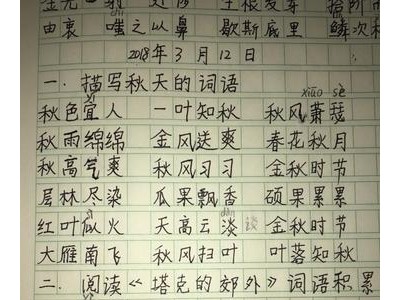 由衷 嗤之以鼻 歇斯底里 鳞次
2018年3月12日
一.描写秋天的词语
xiāo sè
秋色宜人 一叶知秋 秋风萧瑟
秋雨绵绵 金风送爽 春花秋月
秋高气爽 秋风习习 金秋时节
层林尽染 瓜果飘香 硕果累累
dàn
红叶似火 天高云淡 淡 金秋时节
大雁南飞 秋风扫叶 叶落知秋
二.阅读《塔克的郊外》词语积累